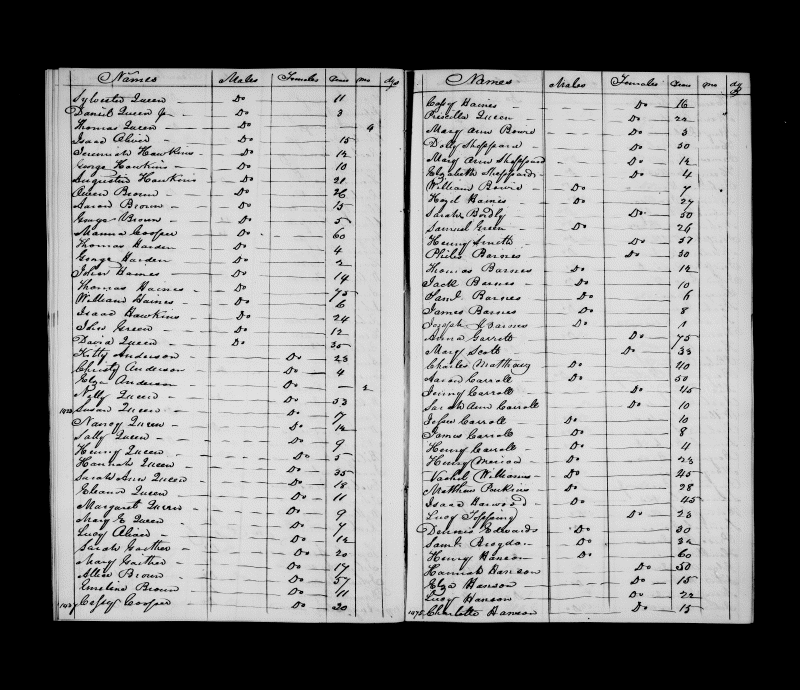 Names Males Females Years mo dys
Sylvester Queen — Do 11
Daniel Queen Jr — Do 3
Thomas Queen — Do — 4
Isaac Oliver — Do 15
Jeremiah Hawkins — Do 12
George Hawkins — Do 10
Augustus Hawkins Do 21
Owen Brown — Do 26
Aaron Brown — Do 15
George Brown — Do 5
Manna Cooper Do 60
Thomas Harden Do 4
George Harden Do 2
John Haines Do 14
Thomas Haines — Do 75
William Haines — Do 6
Isaac Hawkins Do 24
John Green — Do 12
David Queen — Do 35
Kitty Anderson Do 23
Christy Anderson Do 4
Eliza Anderson Do — 2
Nelly Queen — Do 53
Susan Queen — Do 7
Nancy Queen — Do 12
Sally Queen — Do 9
Henny Queen — Do 5
Hannah Queen — Do 35
Sarah Ann Queen Do 18
Eleana Queen Do 11
Margaret Queen Do 9
Mary E Queen Do 7
Lucy Do 12
Sarah Gaither Do 20
Mary Gaither Do 17
Allen Brown — Do 57
Emeline Brown Do 11
1037 Cassy Cooper Do 20
Names Males Females Years mo dys
Cassy Haines — Do 16
Priscilla Queen Do 22
Mary Ann Bowie Do 3
Dolly Sheppard — Do 50
Mary Ann Sheppard — Do 12
Elizabeth Sheppard Do 4
William Bowie — Do 7
Hazel Haines — Do 27
Sarah Bordly Do 50
Samuel Green — Do 26
Henny Smith Do 57
Philis Barnes Do 30
Thomas Barnes Do 12
Jack Barnes — Do 10
Saml. Barnes Do 6
James Barnes Do 8
Joseph H Barnes Do 1
Anna Garrett Do 75
Mary Scott Do 33
Charles Matthews Do 40
Aaron Carroll Do 50
Jenny Carroll Do 45
Sarah Ann Carroll Do 10
John Carroll Do 10
James Carroll Do 8
Henry Carroll Do 4
Henry Do 23
Vachel Williams — Do 45
Matthew Do 28
Isaac Harwood — Do 45
Lucy Topping Do 23
Dennis Edwards Do 30
Saml. Brogdon Do 32
Henry Hanson Do 60
Hannah Hanson Do 50
Eliza Hanson Do 15
Lucy Hanson Do 22
1075 Charlotte Hanson Do 15